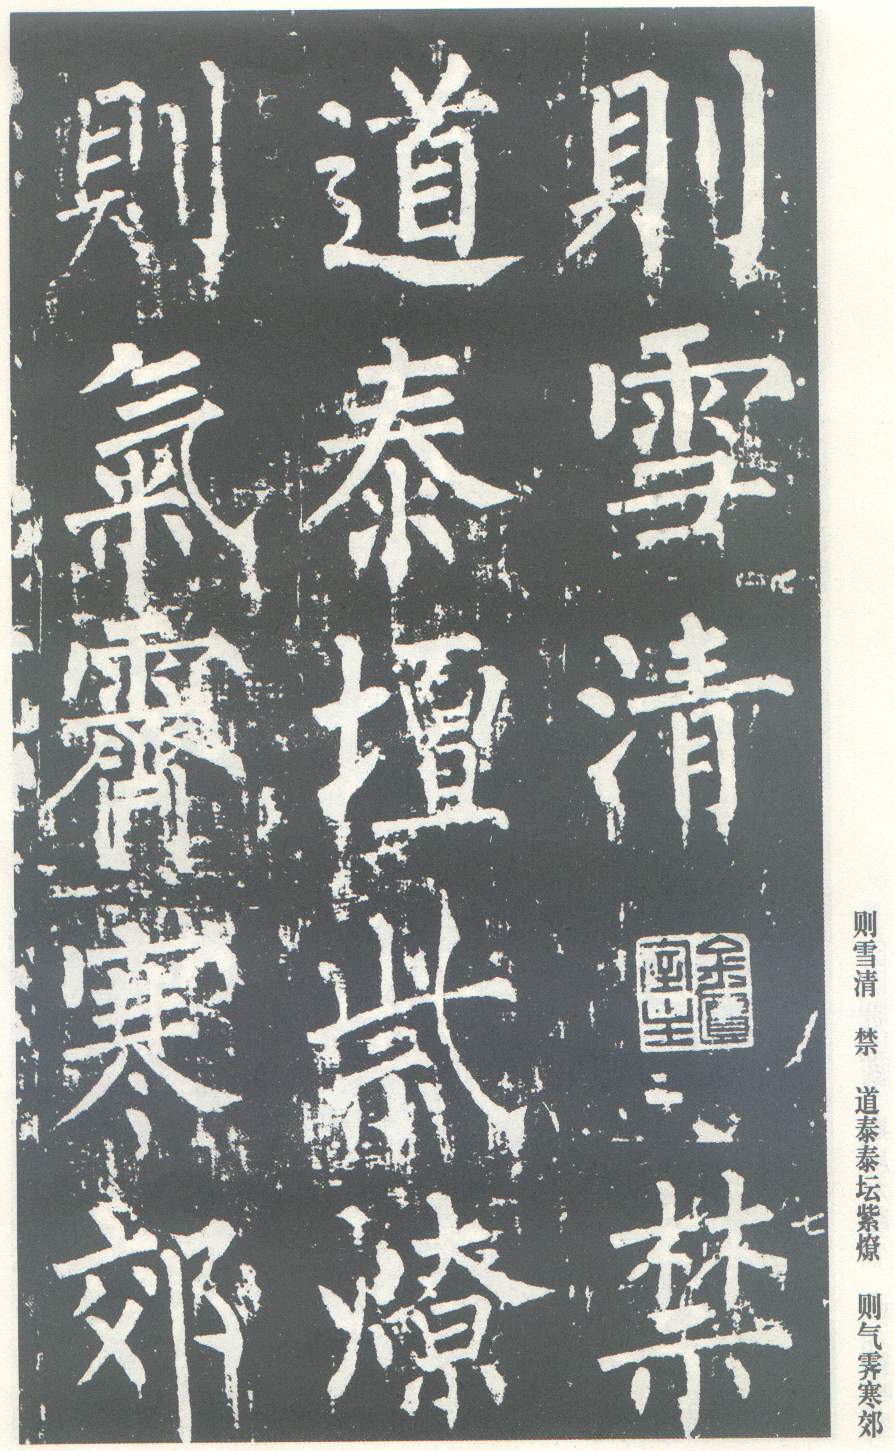 則雪清
禁
道泰壇紫燎
則氣霽寒郊
则雪清 禁 道泰泰坛紫燎 则气霁寒郊